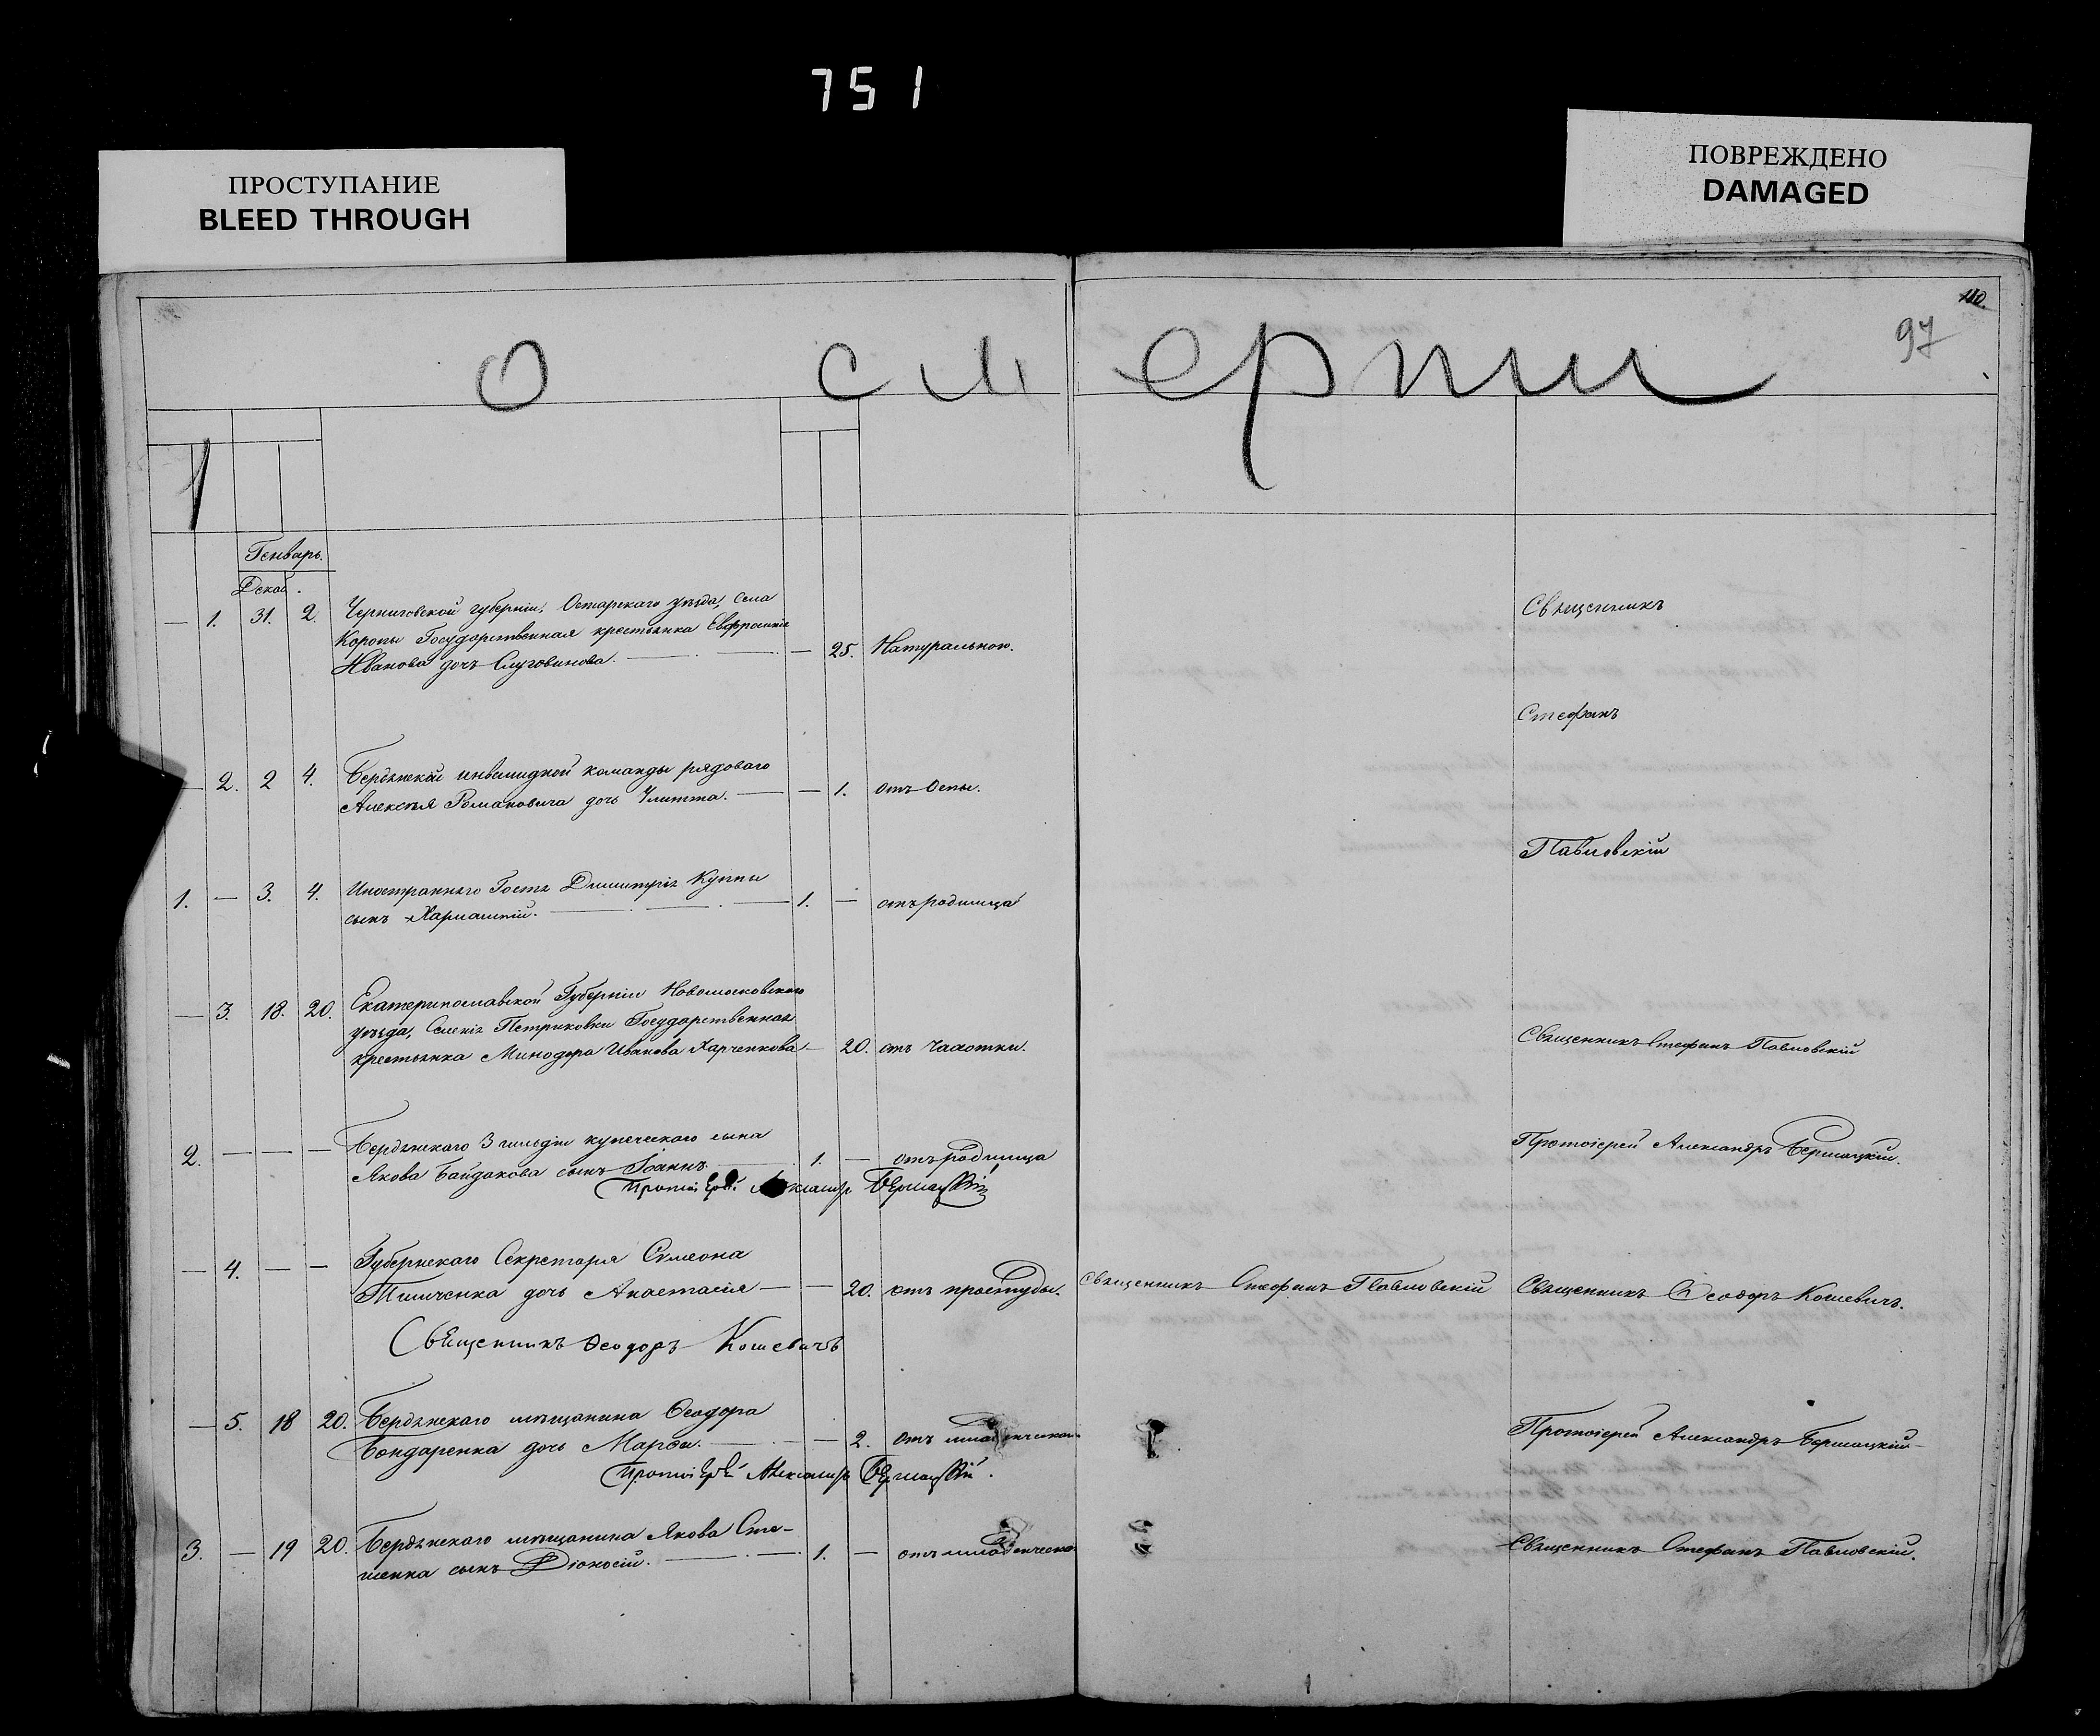 751
ПРОСТУПАНИЕ
BLEED THROUGH
ПОВРЕЖДЕНО
DAMAGED
110.
97
о смерти
1
Генварь.
Декаб.
— 1. 31. 2. Черниговской губерніи, Остарскаго уѣзда, села
Коропы Государственная крестьянка Евфросинія
Иванова дочь Слуговинова. — — 25. Натуральною.
Священникъ
Стефанъ
Павловскій
— 2. 2 4. Бердянской инвалидной команды рядоваго
Алексѣя Романовича дочь Улитта. — — 1. отъ Оспы.
1. — 3. 4. Иностраннаго Гостя Димитрія Куппы
сынъ Харлампій. — 1. — отъ родимца
— 3. 18. 20. Екатеринославской Губерніи Новомосковскаго
уѣзда, Селенія Петриковки Государственная
крестьянка Минодора Иванова Харченкова — 20. отъ чахотки.
Священникъ Стефанъ Павловскій
2. — — — Бердянскаго 3 гильдіи купеческаго сына
Якова Байдакова сынъ Іоаннъ. — 1. — отъ родимца
Протоіерей Александръ Бершацкій.
Протоіерей Александръ Бершацкій
— 4. — — Губернскаго Секретаря Симеона
Тимченка дочь Анастасія — — 20. отъ простуды. Священникъ Стефанъ Павловскій Священникъ Ѳеодоръ Кошевичъ.
Священникъ Ѳеодоръ Кошевичъ
— 5. 18 20. Бердянскаго мѣщанина Ѳеодора
Бондаренка дочь Марѳа. — — 2. отъ
Протоіерей Александръ Бершацкій
Протоіерей Александръ Бершацкій.
3. — 19 20. Бердянскаго мѣщанина Якова Сте-
шенка сынъ Діоносій. — 1. — отъ младенческо
Священникъ Стефанъ Павловскій.